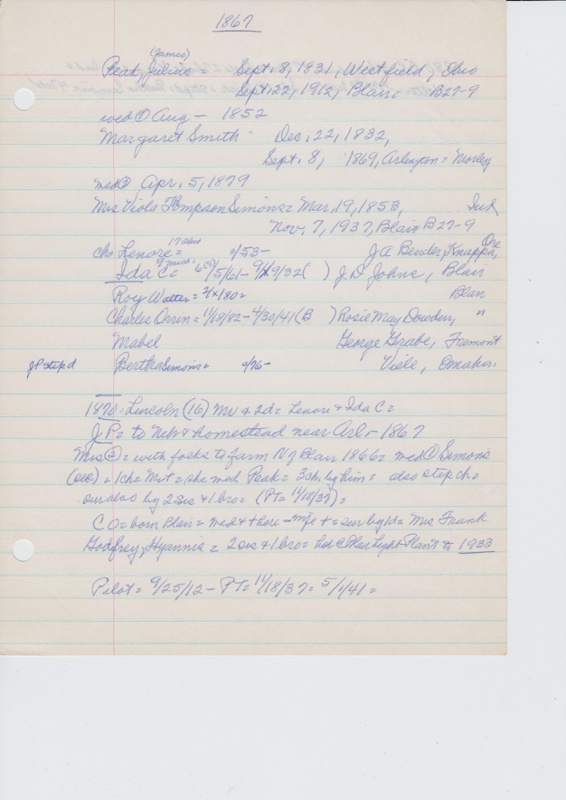 1867
(James)
Peak, Julius = Sept. 8, 1831, Westfield, Ohio
Sept. 22, 1912, Blair, B27-9
wed ① Aug - 1852
Margaret Smith Dec. 22, 1832,
Sept. 8, 1869, Arlington = Morley
med ② Apr. 5, 1879
Mrs Viola Thompson Simons = Mar. 19, 1853, Ind
Nov. 7, 1937, Blair B27-9
ch. Lenore = /53- J A Bender, Knappa, Ore
Ida C = /5/61- 9/32 ( ) J. D Johns, Blair
Roy Walter = 2/ /80 = Blair
Charles Orrin = 1/18/82 - 4/30/41 (B ) Rosie May Dowden, "
Mabel George Grabe, Fremont
JP step d Bertha Simons = /76- Viele, Omaha.
1870 - Lincoln (16) Mv & 2d = Lenore & Ida C =
J P = to Neb & homestead near Arl - 1867
Mrs ② = with folks to farm N of Blair 1866 = med ① Simons
(dec) = 1 ch = Mvt = she med Peak = 3 ch by him = also step ch =
sur also by 2 sis & 1 bro = (PT = 11/18/37) =
C O = born Blair = med & there - wife & = sur by 1d = Mrs Frank
Godfrey, Hyannis = 2 sis & 1 bro = Light Plant to 1933
Pilot = 9/25/12 - PT = 11/18/37 = 5/1/41 =